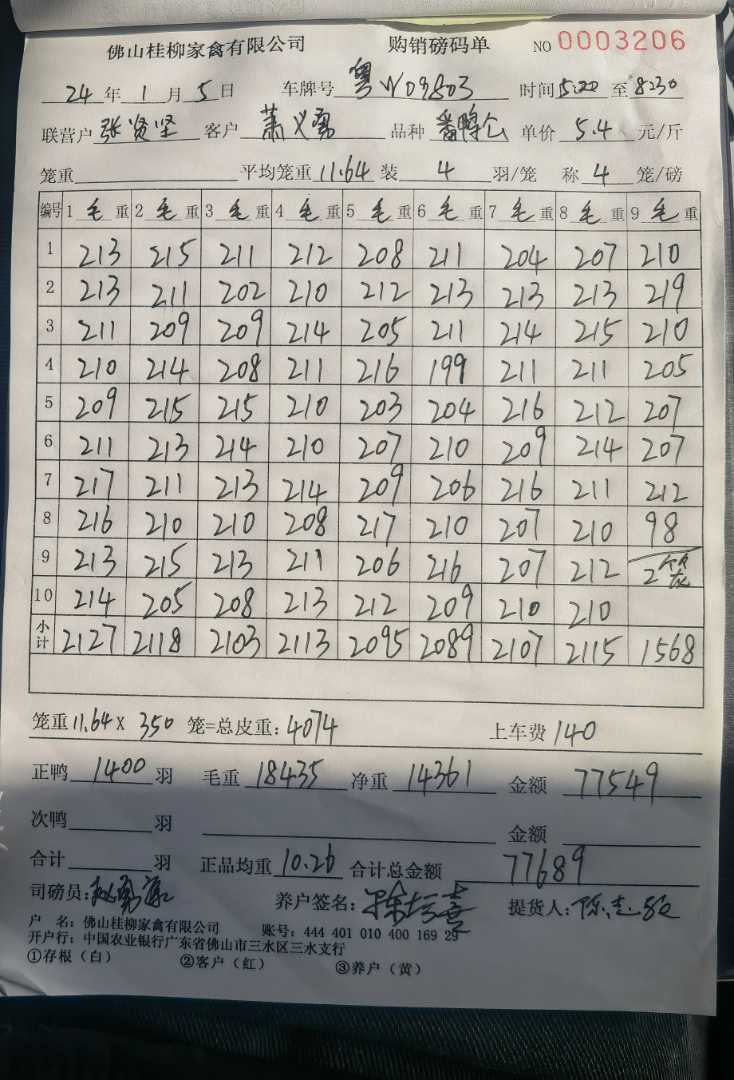 佛山桂柳家禽有限公司 购销磅码单 NO 0003206
24年1月5日 车牌号 粤W09803 时间5:20至8:30
联营户 张贤坚 客户 萧义勇 品种 番鸭公 单价 5.4 元/斤
笼重 平均笼重 11.64 装 4 羽/笼 称 4 笼/磅
编号 1 毛 重 2 毛 重 3 毛 重 4 毛 重 5 毛 重 6 毛 重 7 毛 重 8 毛 重 9 毛 重
1 213 215 211 212 208 211 204 207 210
2 213 211 202 210 212 213 213 213 219
3 211 209 209 214 205 211 214 215 210
4 210 214 208 211 216 199 211 211 205
5 209 215 215 210 203 204 216 212 207
6 211 213 214 210 207 210 209 214 207
7 217 211 213 214 209 206 216 211 212
8 216 210 210 208 217 210 207 210 98
9 213 215 213 211 206 216 207 212 2个笼
10 214 205 208 213 212 209 210 210
小计 2127 2118 2103 2113 2095 2089 2107 2115 1568
笼重 11.64 X 350 笼=总皮重: 4074 上车费 140
正鸭 1400 羽 毛重 18435 净重 14361 金额 77549
次鸭 羽 金额
合计 羽 正品均重 10.26 合计总金额 77689
司磅员: 养户签名: 提货人:
户 名: 佛山桂柳家禽有限公司 账号: 444 401 010 400 169 29
开户行: 中国农业银行广东省佛山市三水区三水支行
①存根（白） ②客户（红） ③养户（黄）